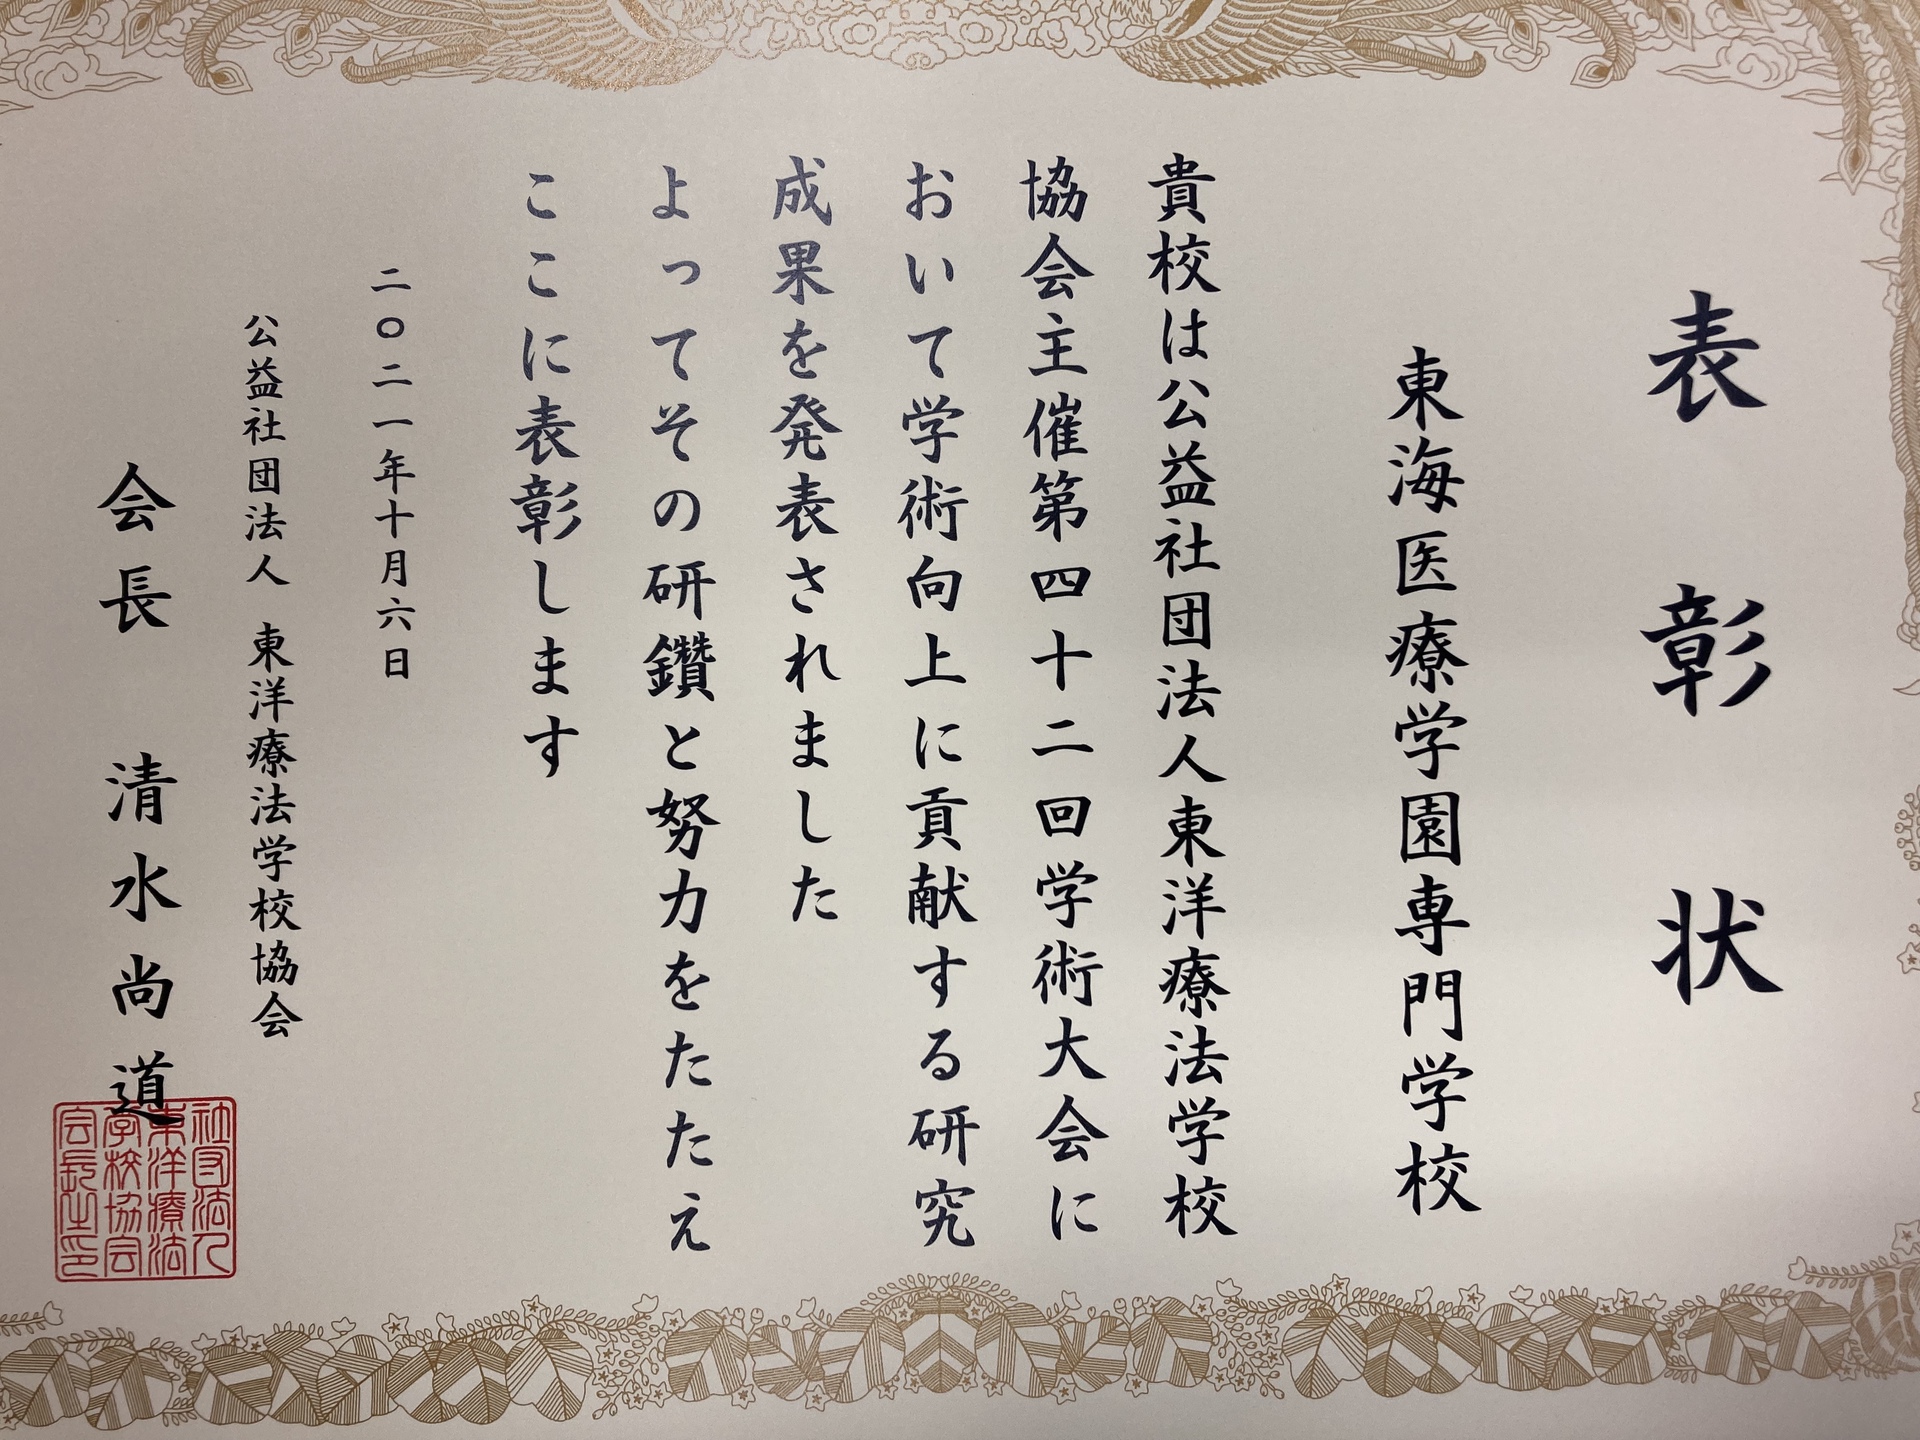 表彰状
東海医療学園専門学校
貴校は公益社団法人東洋療法学校
協会主催第四十二回学術大会に
おいて学術向上に貢献する研究
成果を発表されました
よってその研鑽と努力をたたえ
ここに表彰します
二〇二一年十月六日
公益社団法人 東洋療法学校協会
会長 清水尚道
社団法人
東洋療法
学校協会
会長之印